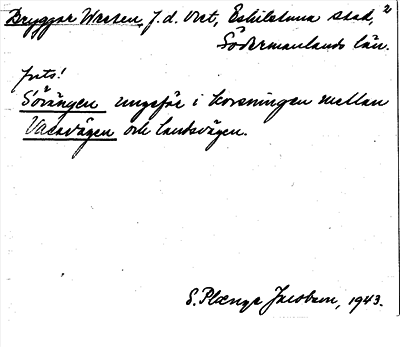 Bryggar Wresten, f.d. vret, Eskilstuna stad, 2
Södermanlands län.
forts!
Sörängen ungefär i korsningen mellan
Vasavägen och landsvägen.
S. Plænge Jacobson, 1943.